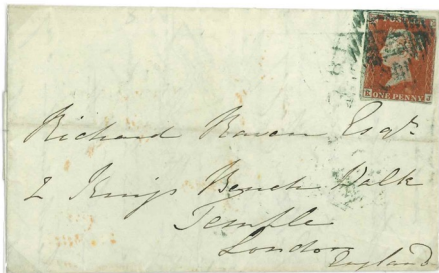 ONE PENNY
Richard Esqr.
2 Kings Bench Walk
Temple
London
England